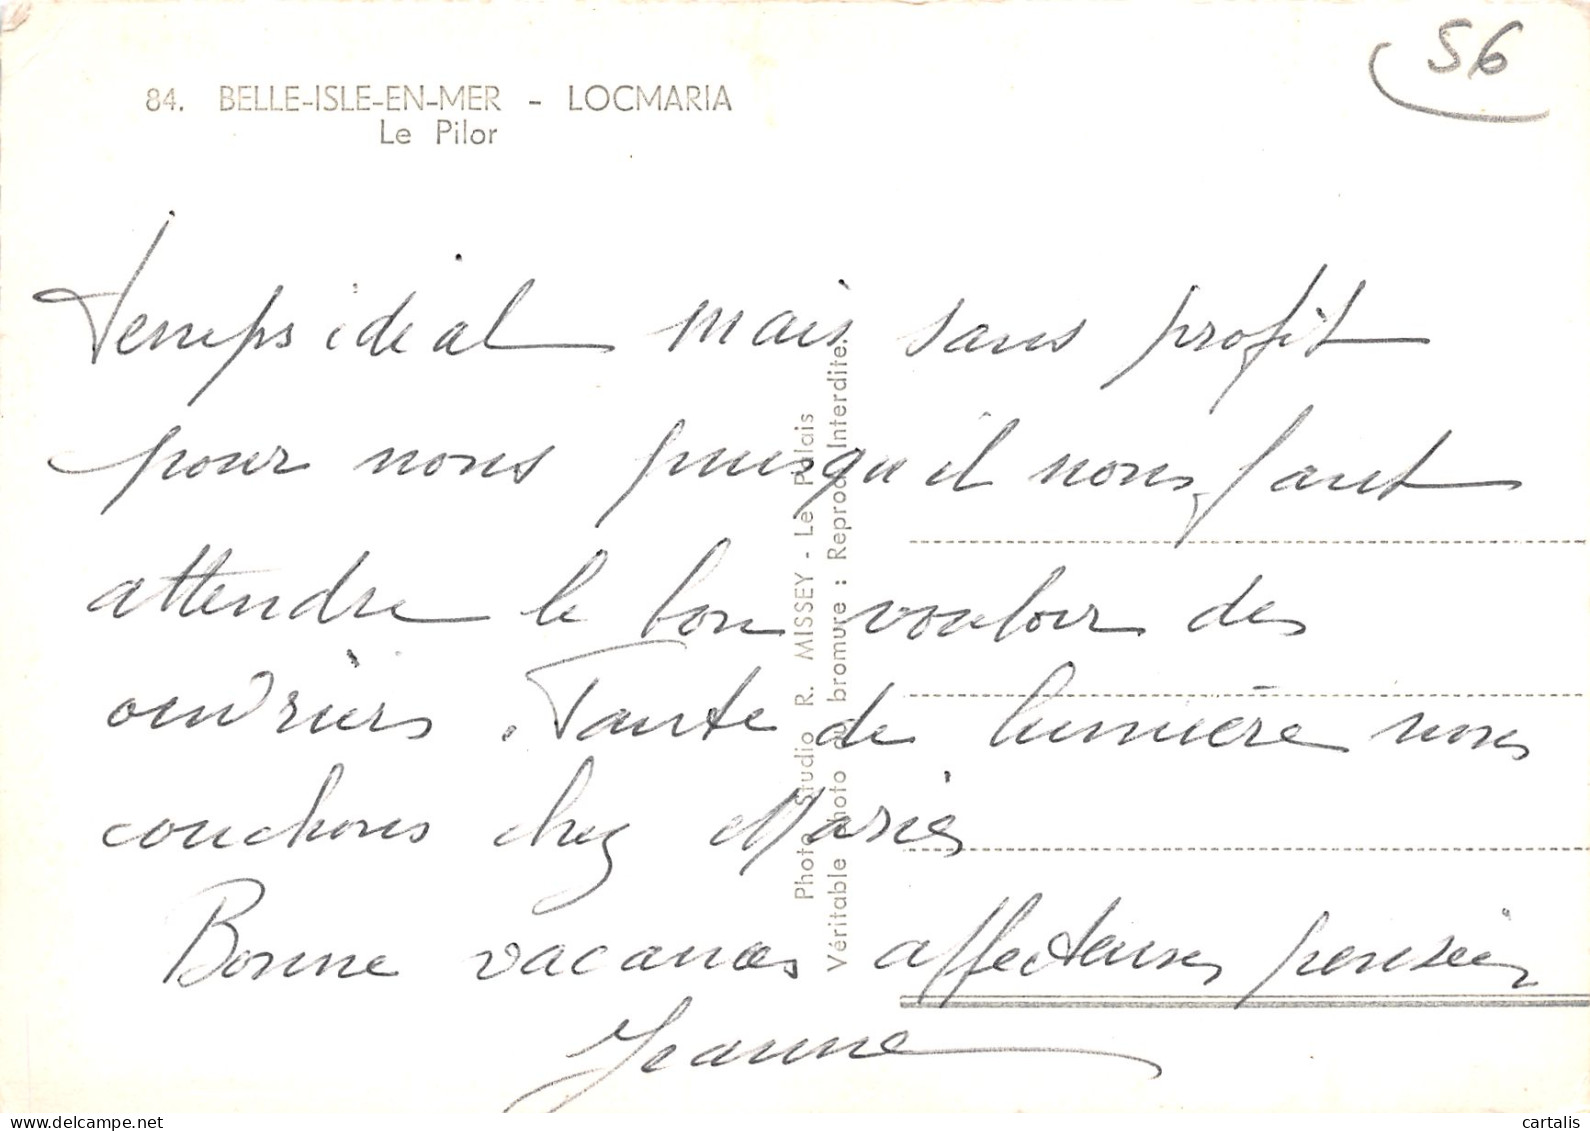 56
84. BELLE-ISLE-EN-MER - LOCMARIA
Le Pilor
Temps ideal mais sans profit
pour nous puisqu'il nous faut
attendre le bon vouloir des
ouvriers. Faute de lumière nous
couchons chez Marie
Bonne vacances affectueuses pensées
Jeanne
Photo Studio R. MISSEY - Le Palais
Véritable photo au bromure : Reprod. Interdite.
www.delcampe.net
cartalis